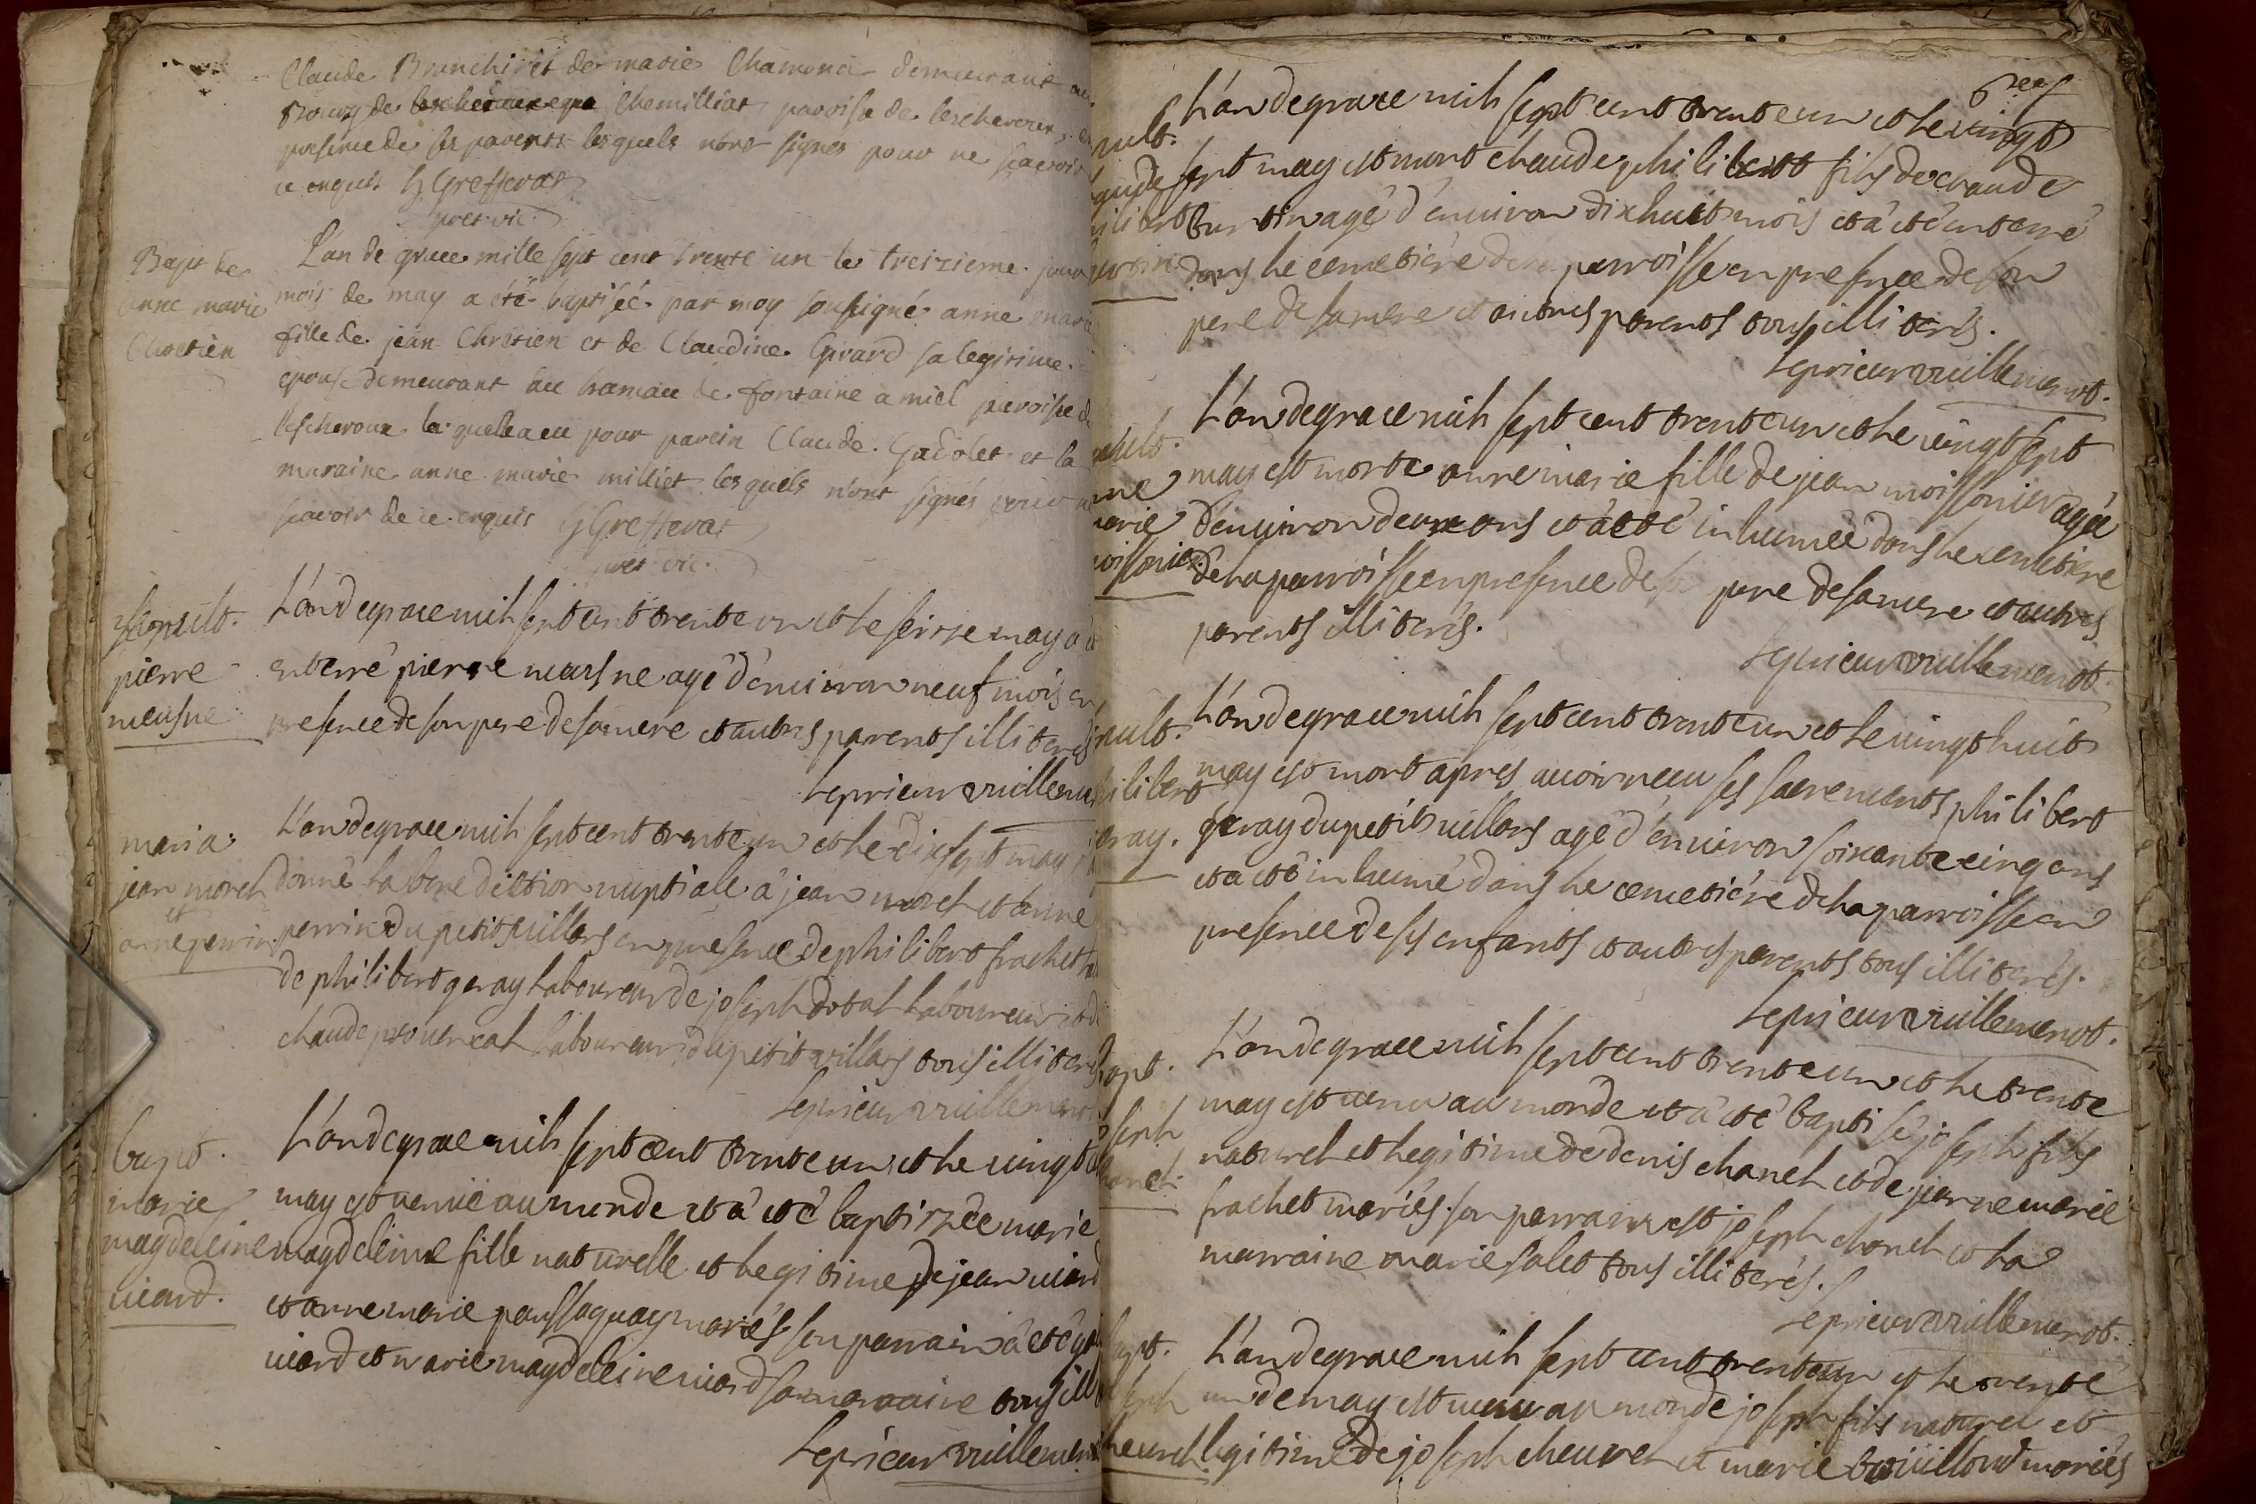 Claude Branchi et de marie Chamona demeurant au
Bourg de Chemilliat paroisse de lescheroux en
presence de ses parents lesquels n'ont signes pour ne scavoir
ce enquis G Greffera
pret. vic.
Bapt de
anne marie
Chretien
L'an de grace mille sept cent trente un le treizieme jour
mois de may a été baptiséé par moy soussigné anne marie
fille de jean Chretien et de Claudine Girard sa legitime
epouse demeurant au hameau de fontaine a miel paroisse de
lescheroux la quelle a eu pour parein Claude Gadolet et la
maraine anne marie milliet lesquels n'ont signés pour ne
scavoir de ce enquis G Greffera
pret. vic.
sepult.
pierre
meusne
L'an de grace mih sept cent trente un et le seize may a été
enterré pierre meusne agé d'environ neuf mois en
presence de son pere de sa mere et autres parents illiterés
Le prieur vuillemenot
maria:
jean moreh
et
anne perrin
L'an de grace mih sept cent trente un et le dix sept may j'ai
donné la benediction nuptiale a jean moreh et anne
perrin du petit villars en presence de philibert frachet
de philibert geray laboureur de joseph dotal laboureur et de
claude provencal laboureur du petit villars tous illiterés
Le prieur vuillemenot
bapt.
marie
magdeleine
viard.
L'an de grace mih sept cent trente un et le vingt
may est venüe au monde et a eté baptizée marie
magdeleine fille naturelle et legitime de jean viard
et anne marie panssaquay mariés son parrain a eté
viard et marie magdeleine viard sa marraine tous ill
Le prieur vuillemenot
neuf
pult.
aude
ilibert
burtin
L'an de grace mih sept cent trente un et le vingt
sept may est mort claude philibert fils de claude
burtin agé d'environ dix huit mois et a eté enterré
dans le cemetiere de la parroisse en presence de son
pere de sa mere et autres parents tous illiterés.
Le prieur vuillemenot.
pult.
nne
marie
oissonier
L'an de grace mih sept cent trente un et le vingt sept
may est morte anne marie fille de jean moissonier agée
d'environ deux ans et a eté inhumée dans le cemetiere
de la parroisse en presence de son pere de sa mere et autres
parents illiterés.
Le prieur vuillemenot.
pult.
hilibert
eray.
L'an de grace mih sept cent trente un et le vingt huit
may est mort apres avoir receu ses sacrements philibert
geray du petit villars agé d'environ soixante cinq ans
et a eté inhumé dans le cemetiére de la parroisse en
presence de ses enfants et autres parents tous illiterés.
Le prieur vuillemenot.
bapt.
seph
aneh
L'an de grace mih sept cent trente un et le trente
may est venu au monde et a eté baptisé joseph fils
naturel et legitime de denis chaneh et de jeanne marie
frachet mariés. son parrain est joseph chaneh et la
marraine marie salet tous illiterés.
Le prieur vuillemenot.
bapt.
seph
heureh
L'an de grace mih sept cent trente un et le trente
un de may est venu au monde joseph fils naturel et
legitime de joseph cheureh et marie bouilloud mariés